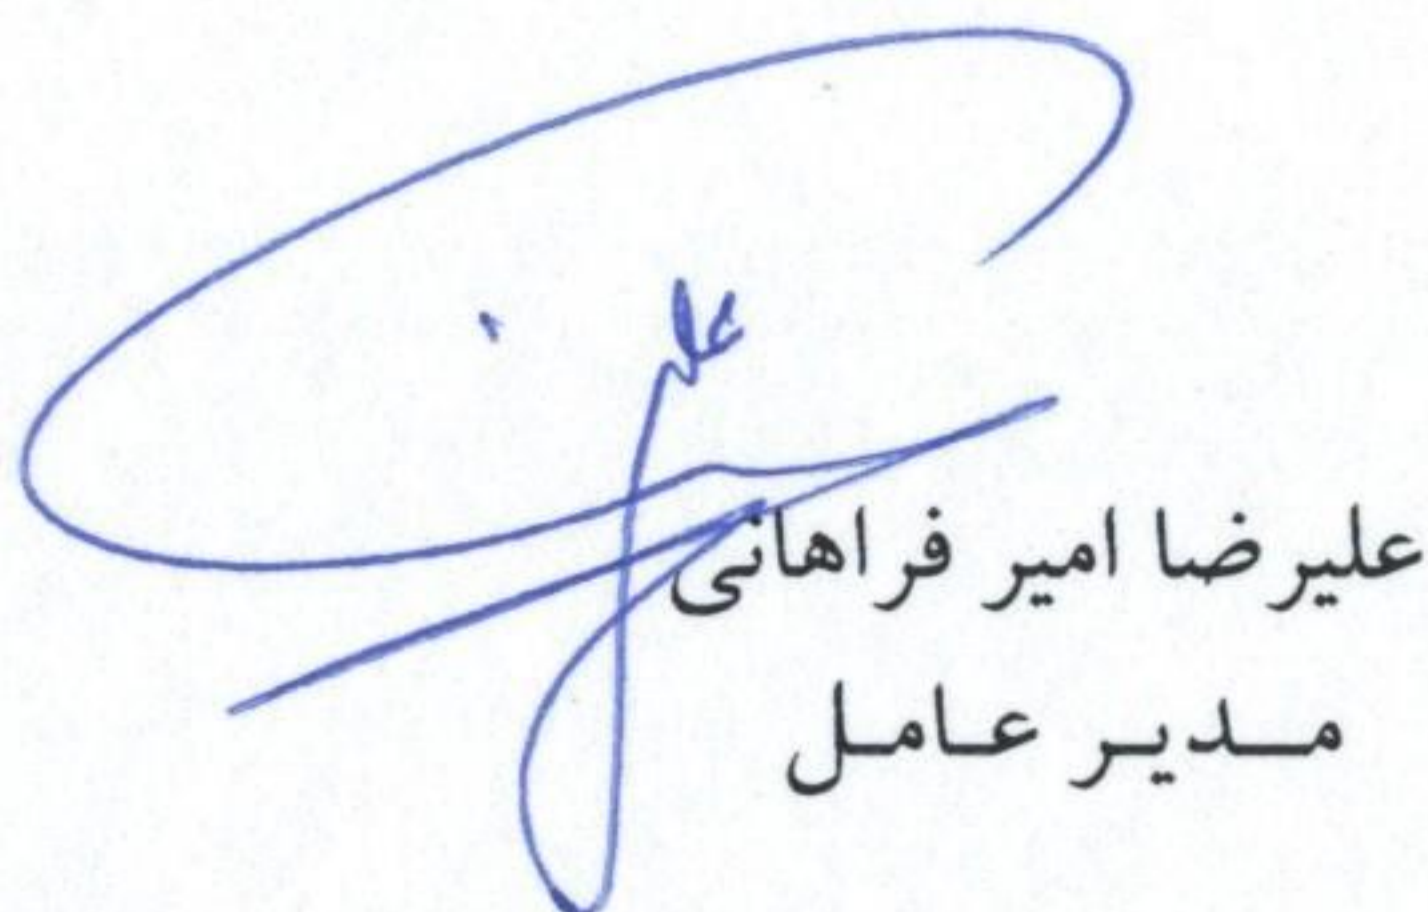 علیرضا امیر فراهانی
مدیر عامل